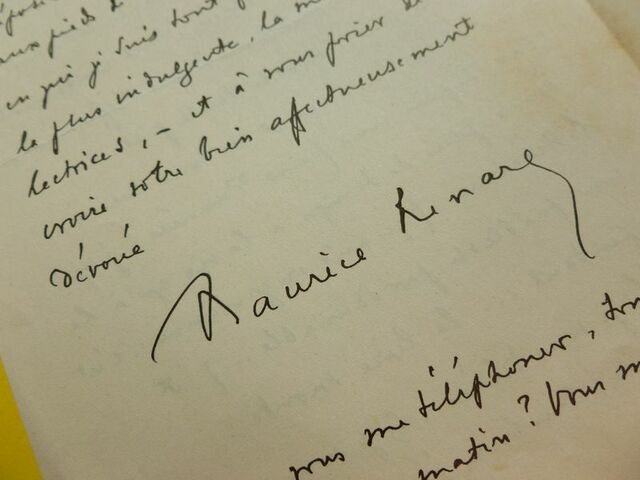 aux pieds d
en qui je suis tout
la plus indulgente, la m
lectrices, - et à vous prier de
croire votre bien affectueusement
dévoué
Maurice Renard
vous me téléphoner, tou
matin ? Vous m